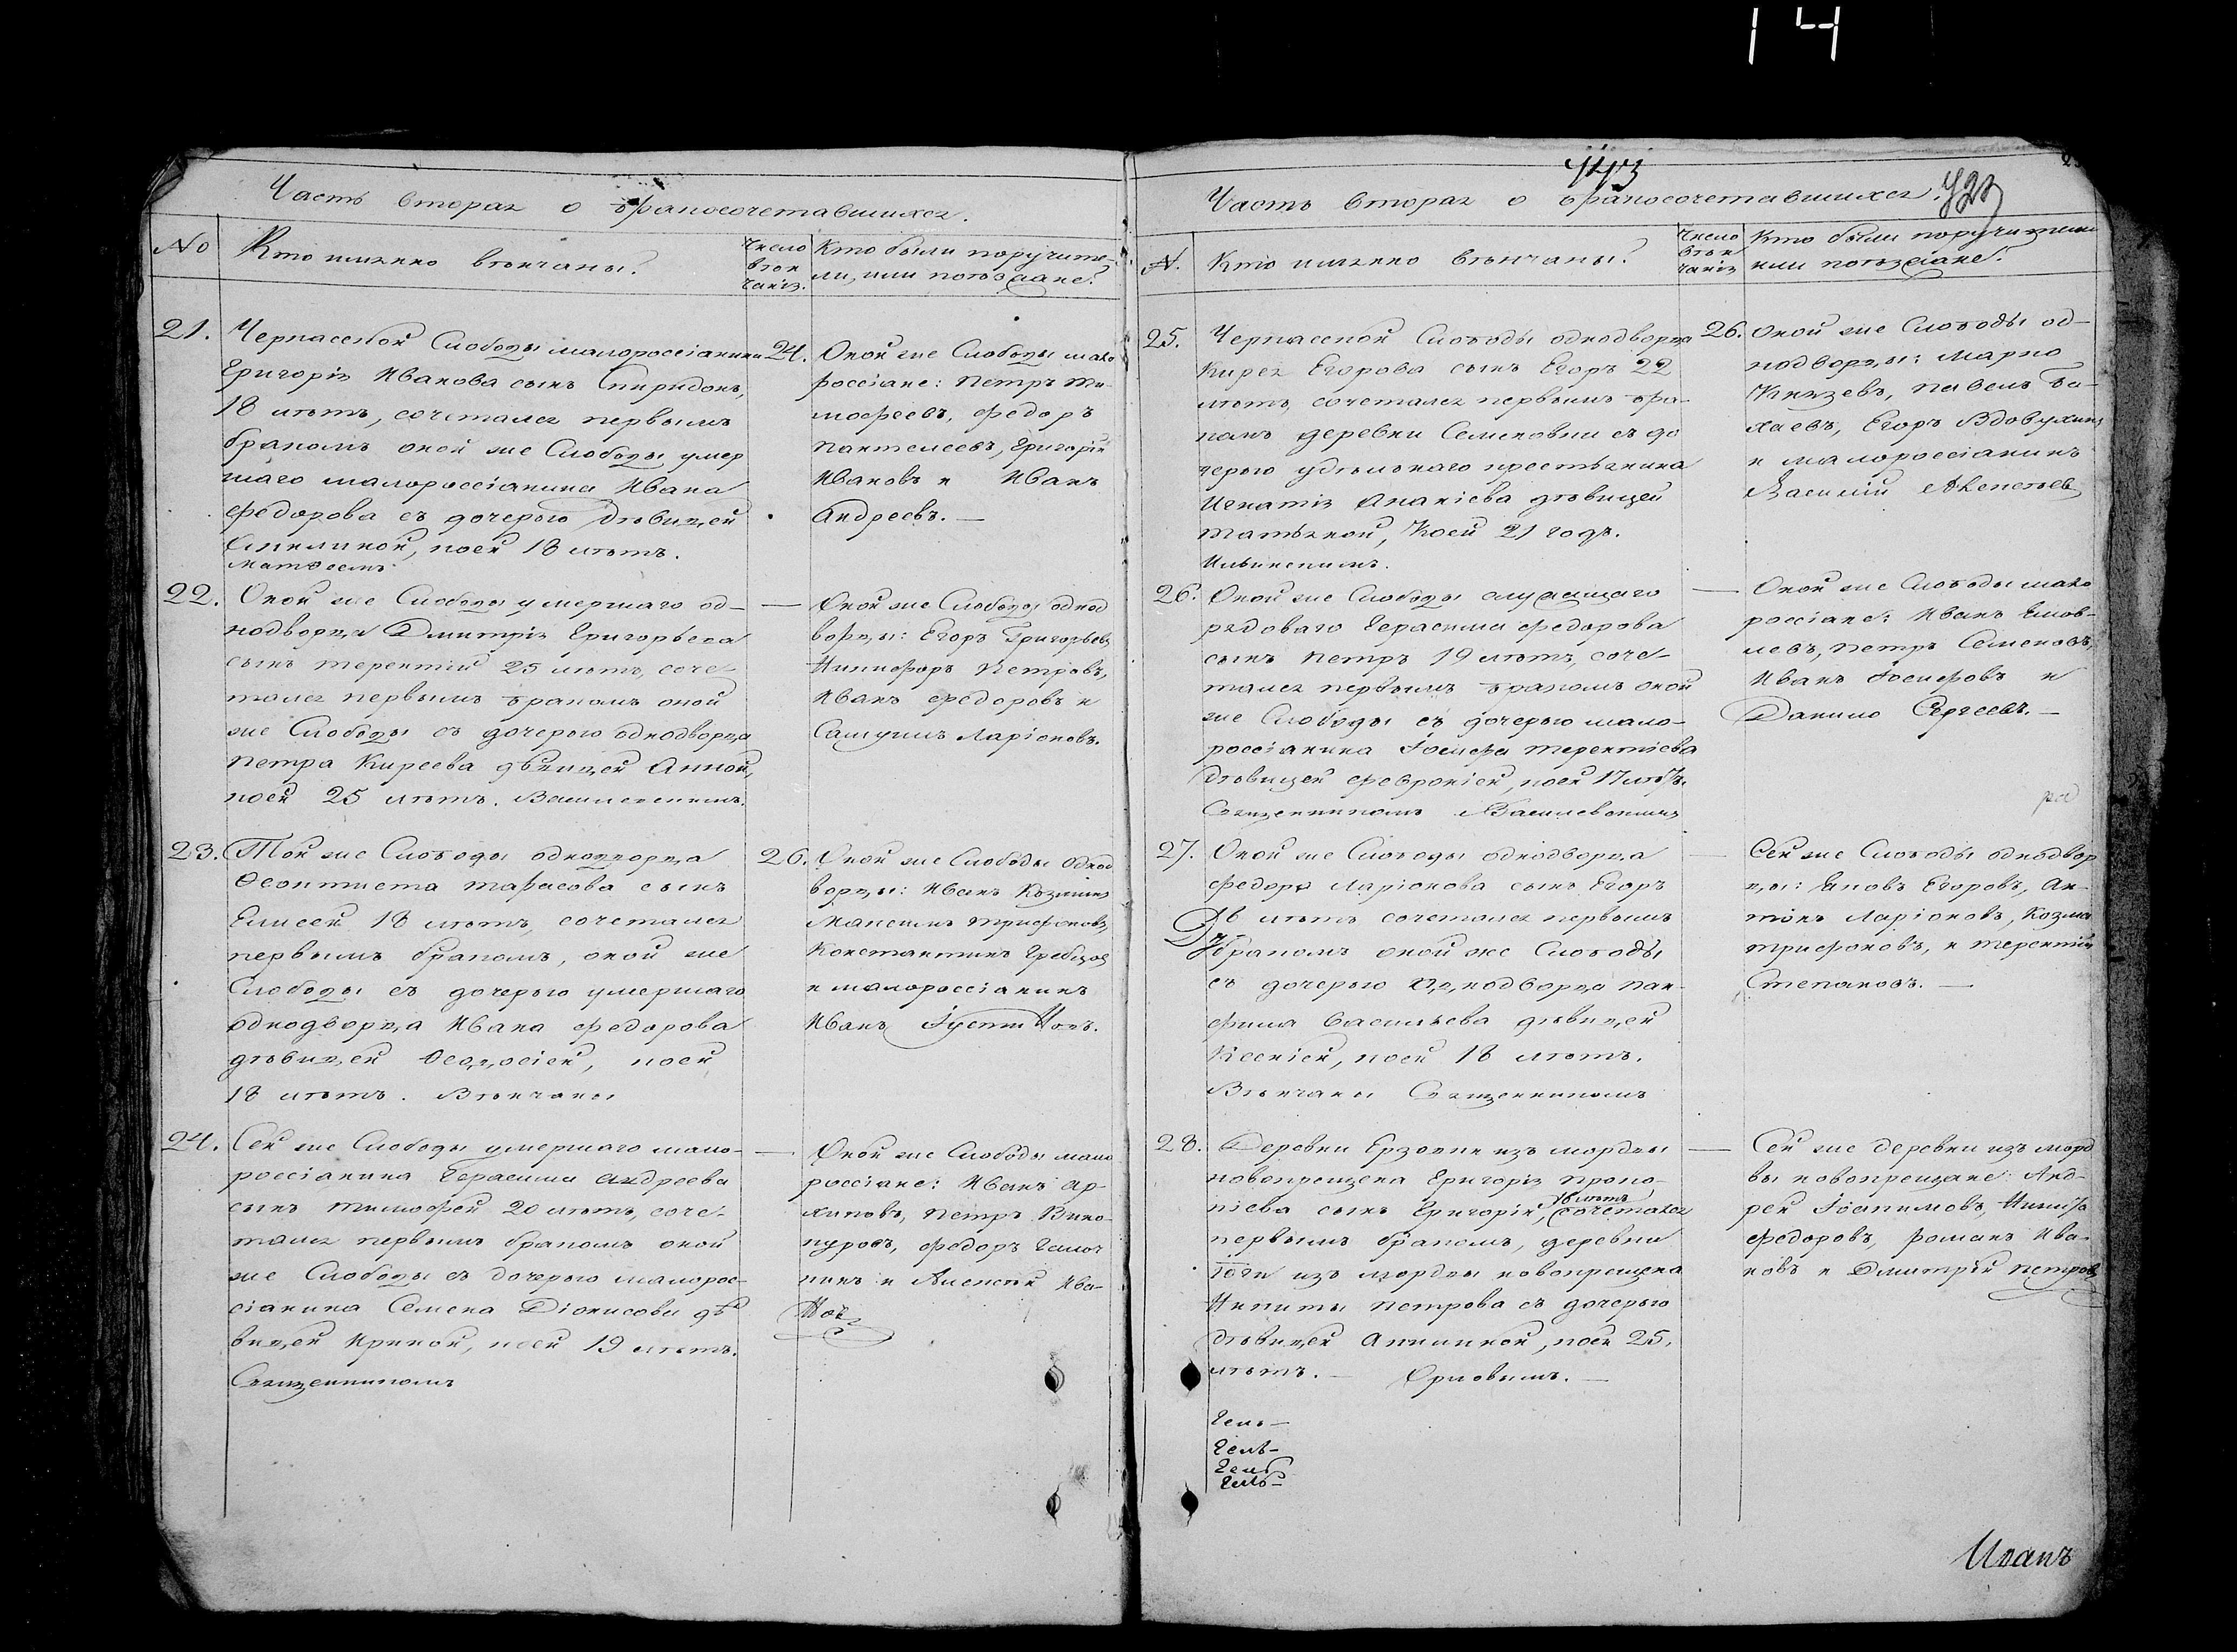 14
Часть вторая о бракосочетавшихся.
No
Кто имянно вѣнчаны?
Число
вѣн
чанія.
Кто были поручите-
ли, или поѣзжане?
21.
Черкасской Слободы малороссіянина
Григорія Иванова сынъ Спиридонъ,
18 лѣтъ, сочетался первымъ
бракомъ оной же Слободы умер
шаго малороссіянина Ивана
Федорова съ дочерью дѣвицей
коей 18 лѣтъ.
24.
Оной же Слободы мало
россіане: Петръ Ти-
мофеевъ, Федоръ
Пантелеевъ, Григорій
Ивановъ и Иванъ
Андреевъ. —
22.
Оной же Слободы умершаго од-
нодворца Дмитрія Григорьева
сынъ Терентій 25 лѣтъ, соче-
тался первымъ бракомъ оной
же Слободы съ дочерью однодворца
Петра Киреева дѣвицей Анной,
коей 25 лѣтъ.
—
Оной же Слободы однод
ворцы: Егоръ Григорьевъ
Никифоръ Петровъ,
Иванъ Федоровъ и
Самуилъ Ларіоновъ.
23.
Той же Слободы однодворца
Феоктиста Тарасова сынъ
Елисей 18 лѣтъ, сочетался
первымъ бракомъ, оной же
Слободы съ дочерью умершаго
однодворца Ивана Федорова
дѣвицей Феодосіей, коей
18 лѣтъ. Вѣнчаны
26.
Оной же Слободы однод
ворцы: Иванъ Козминъ
Максимъ Трифоновъ,
Константинъ Гребцовъ
и малороссіянинъ
Иванъ
24.
Сей же Слободы умершаго мало-
россіянина Герасима Андреева
сынъ Тимофей 20 лѣтъ, соче-
тался первымъ бракомъ оной
же Слободы съ дочерью малорос-
сіянина Семена Діонисова дѣ
вицей Ириной, коей 19 лѣтъ.
Священникомъ
—
Оной же Слободы мало
россіане: Иванъ Ар-
хиповъ, Петръ Вино-
куровъ, Федоръ
и Алексѣй Ива-
новъ
443
Часть вторая о бракосочетавшихся.
423
N.
Кто имянно вѣнчаны?
Число
вѣн
чанія
Кто были поручители
или поѣзжане?
25.
Черкасской Слободы однодворца
Кирея Егорова сынъ Егоръ 22
лѣтъ, сочетался первымъ бра-
комъ деревни Семеновки съ до
черью удѣльнаго крестьянина
Игнатія Ананіева дѣвицей
Татьяной, коей 21 годъ.
Ильинскимъ.
26.
Оной же Слободы од-
нодворцы: Марко
Князевъ, Павелъ Ба-
каевъ, Егоръ Вдовухинъ
и малороссіянинъ
Василій Алексѣевъ
26.
Оной же Слободы служащаго
рядоваго Герасима Федорова
сынъ Петръ 19 лѣтъ, соче-
тался первымъ бракомъ оной
же Слободы съ дочерью мало-
россіянина Іосифа Терентіева
дѣвицей Февроніей, коей 17 лѣтъ.
Священникомъ Василевскимъ
—
Оной же Слободы мало
россіане: Иванъ
Петръ Семеновъ,
Иванъ Іосифовъ и
Данило Сергеевъ. —
27.
Оной же Слободы однодворца
Федора Ларіонова сынъ Егоръ
18 лѣтъ сочетался первымъ
бракомъ оной же Слободы
съ дочерью однодворца Пан-
фила Васильева дѣвицей
Ксеніей, коей 18 лѣтъ.
Вѣнчаны Священникомъ
Сей же Слободы однодвор
цы: Яковъ Егоровъ, Ан-
тонъ Ларіоновъ, Козма
Трифоновъ, и Терентій
Степановъ. —
28.
Деревни Ерзовки изъ мордвы
новокрещена Григорія Проко-
піева сынъ Григорій, 18 лѣтъ сочетался
первымъ бракомъ, деревни
изъ мордвы новокрещена
Никиты Петрова съ дочерью
дѣвицей Акилиной, коей 25,
лѣтъ. — Орловымъ. —
—
Сей же деревни изъ морд
вы новокрещане: Анд-
рей Іоакимовъ, Никифо
Федоровъ, Романъ Ива-
новъ и Дмитрій Петровъ
Иванъ